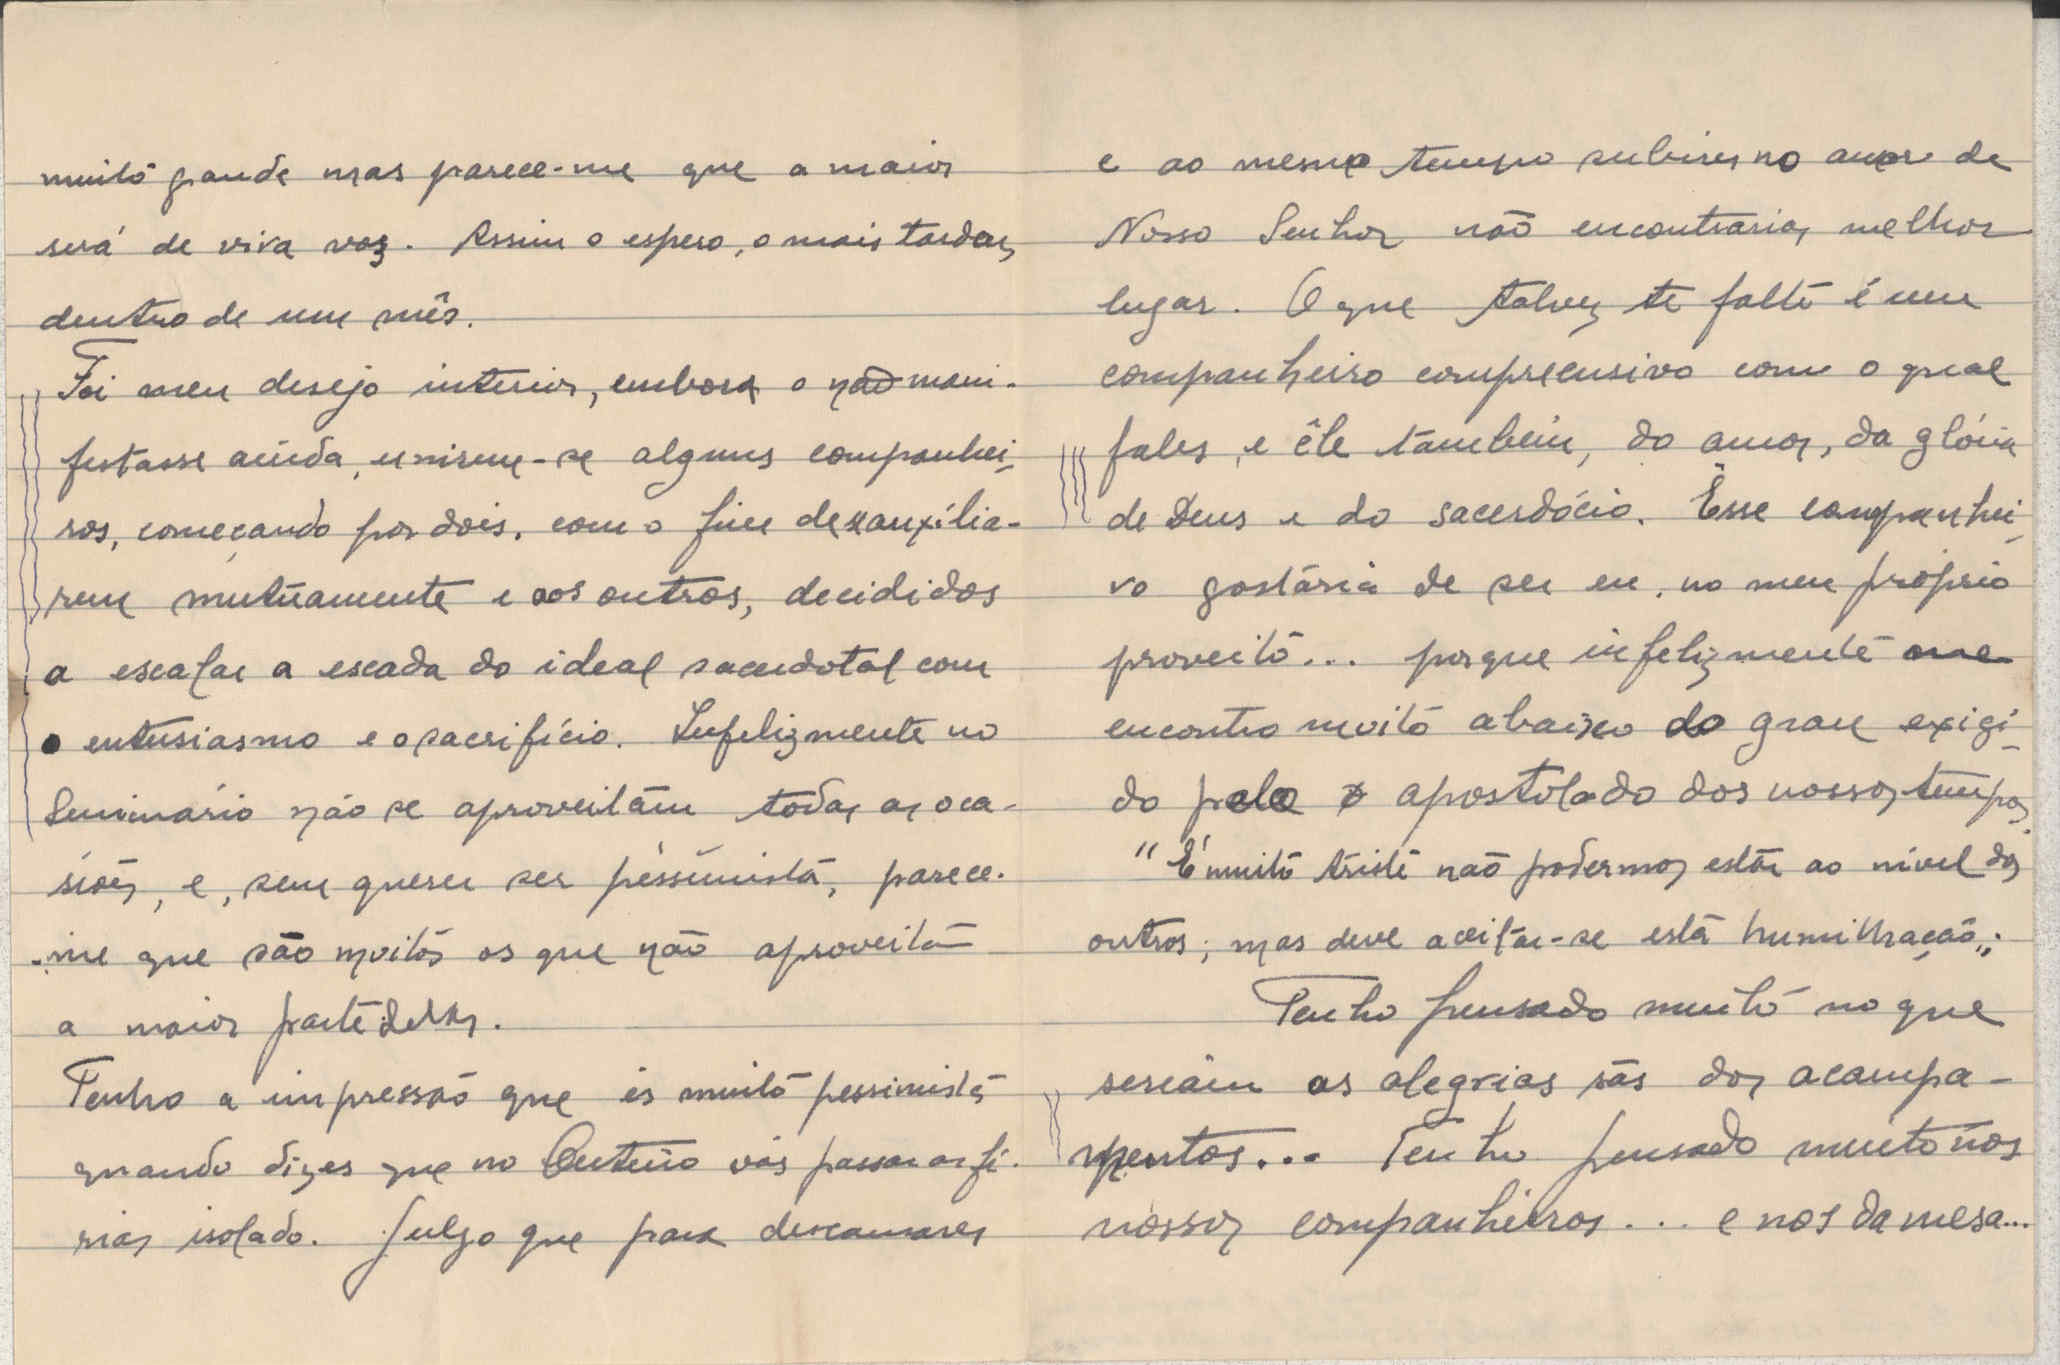 muito grande mas parece-me que a maior
será de viva voz. Assim o espero, o mais tardar,
dentro de um mês.
Foi meu desejo interior, embora o não mani-
festasse ainda, unirem-se alguns companhei-
ros, começando por dois, com o fim de auxilia-
rem mutuamente e aos outros, decididos
a escalar a escada do ideal sacerdotal com
o entusiasmo e o sacrifício. Infelizmente no
Seminário não se aproveitam todas as oca-
siões, e, sem querer ser pessimista, parece-
-me que são muitos os que não aproveitam
a maior parte delas.
Tenho a impressão que és muito pessimista
quando dizes que no Outeiro vás passar as fé-
rias isolado. Julgo que para descansares
e ao mesmo tempo subires no amor de
Nosso Senhor não encontrarias melhor
lugar. O que talvez te falte é um
companheiro compreensivo com o qual
fales, e êle também, do amor, da glória
de Deus e do sacerdócio. Êsse companhei-
ro gostaria de ser eu, no meu próprio
proveito... porque infelizmente me
encontro muito abaixo do grau exigi-
do pelo apostolado dos nossos tempos.
"É muito triste não podermos estar ao nível dos
outros; mas deve aceitar-se esta humilhação".
Tenho pensado muito no que
seriam as alegrias sãs dos acampa-
mentos... Tenho pensado muito nos
nossos companheiros... e nos da mesa...